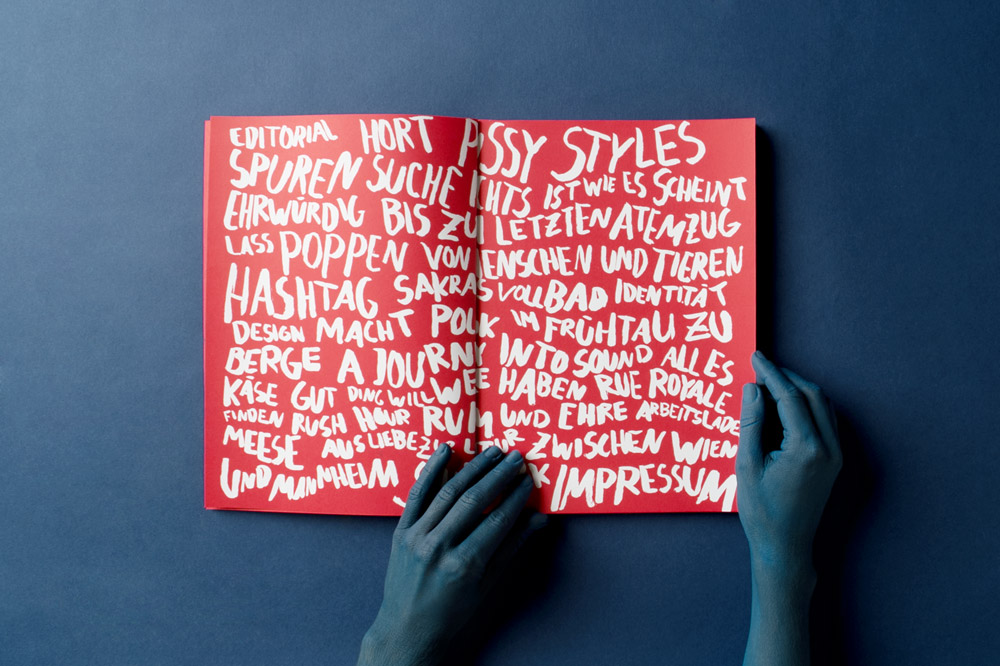 EDITORIAL HORT PUSSY STYLES
SPUREN SUCHE ICHTS IST WIE ES SCHEINT
EHRWÜRDIG BIS ZU LETZTEN ATEMZUG
LASS POPPEN VON ENSCHEN UND TIEREN
HASHTAG SAKRAS VOLLBAD IDENTITÄT
DESIGN MACHT IM FRÜHTAU ZU
BERGE A JOURNY INTO SOUND ALLES
KÄSE GUT DING WILL WEE HABEN RUE ROYALE
FINDEN RUSH HOUR UND EHRE ARBEITSLADE
MEESE AUS LIEBE ZWISCHEN WIEN
UND MANNHEIM IMPRESSUM